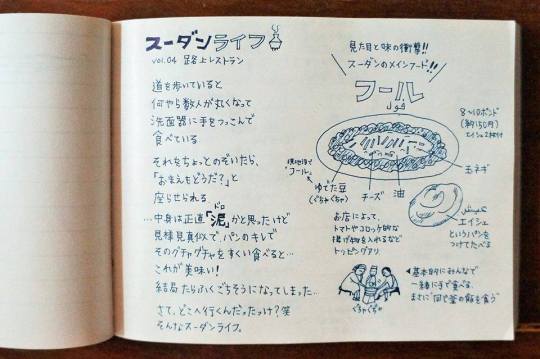 スーダンライフ
vol.04 路上レストラン
道を歩いていると
何やら数人が丸くなって
洗面器に手をつっこんで
食べている
それをちょっとのぞいたら、
「おまえもどうだ?」と
座らせられる
ドロ
…中身は正直「泥」かと思ったけど
見様見真似で、パンのキレで
そのグチャグチャをすくい食べると…
これが美味い!
結局たらふくごちそうになってしまった…
さて、どこへ行くんだったっけ?笑
そんなスーダンライフ。
見た目と味の衝撃!!
スーダンのメインフード!!
フール
فول
8〜10ポンド
(約150円)
エイシュ2枚付
玉ネギ
現地語で
"フール"
ゆでた豆
(ぐちゃぐちゃ)
チーズ
油
عيش
エイシュ
というパンを
つけてたべる
お店によって、
トマトやコロッケ的な
揚げ物を入れるなど
トッピングアリ
ぐちゃぐちゃ
◀基本的にみんなで
一緒に手で食べる。
まさに"同じ釜の飯を食う"